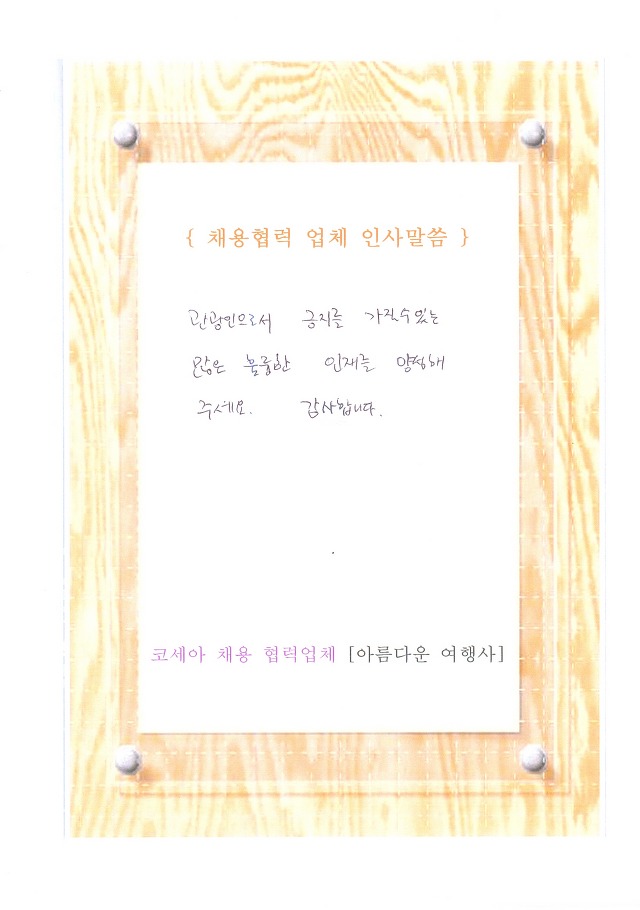 { 채용협력 업체 인사말씀 }
관광인으로서 긍지를 가질수있는
많은 훌륭한 인재를 양성해
주세요. 감사합니다.
코세아 채용 협력업체 [아름다운 여행사]